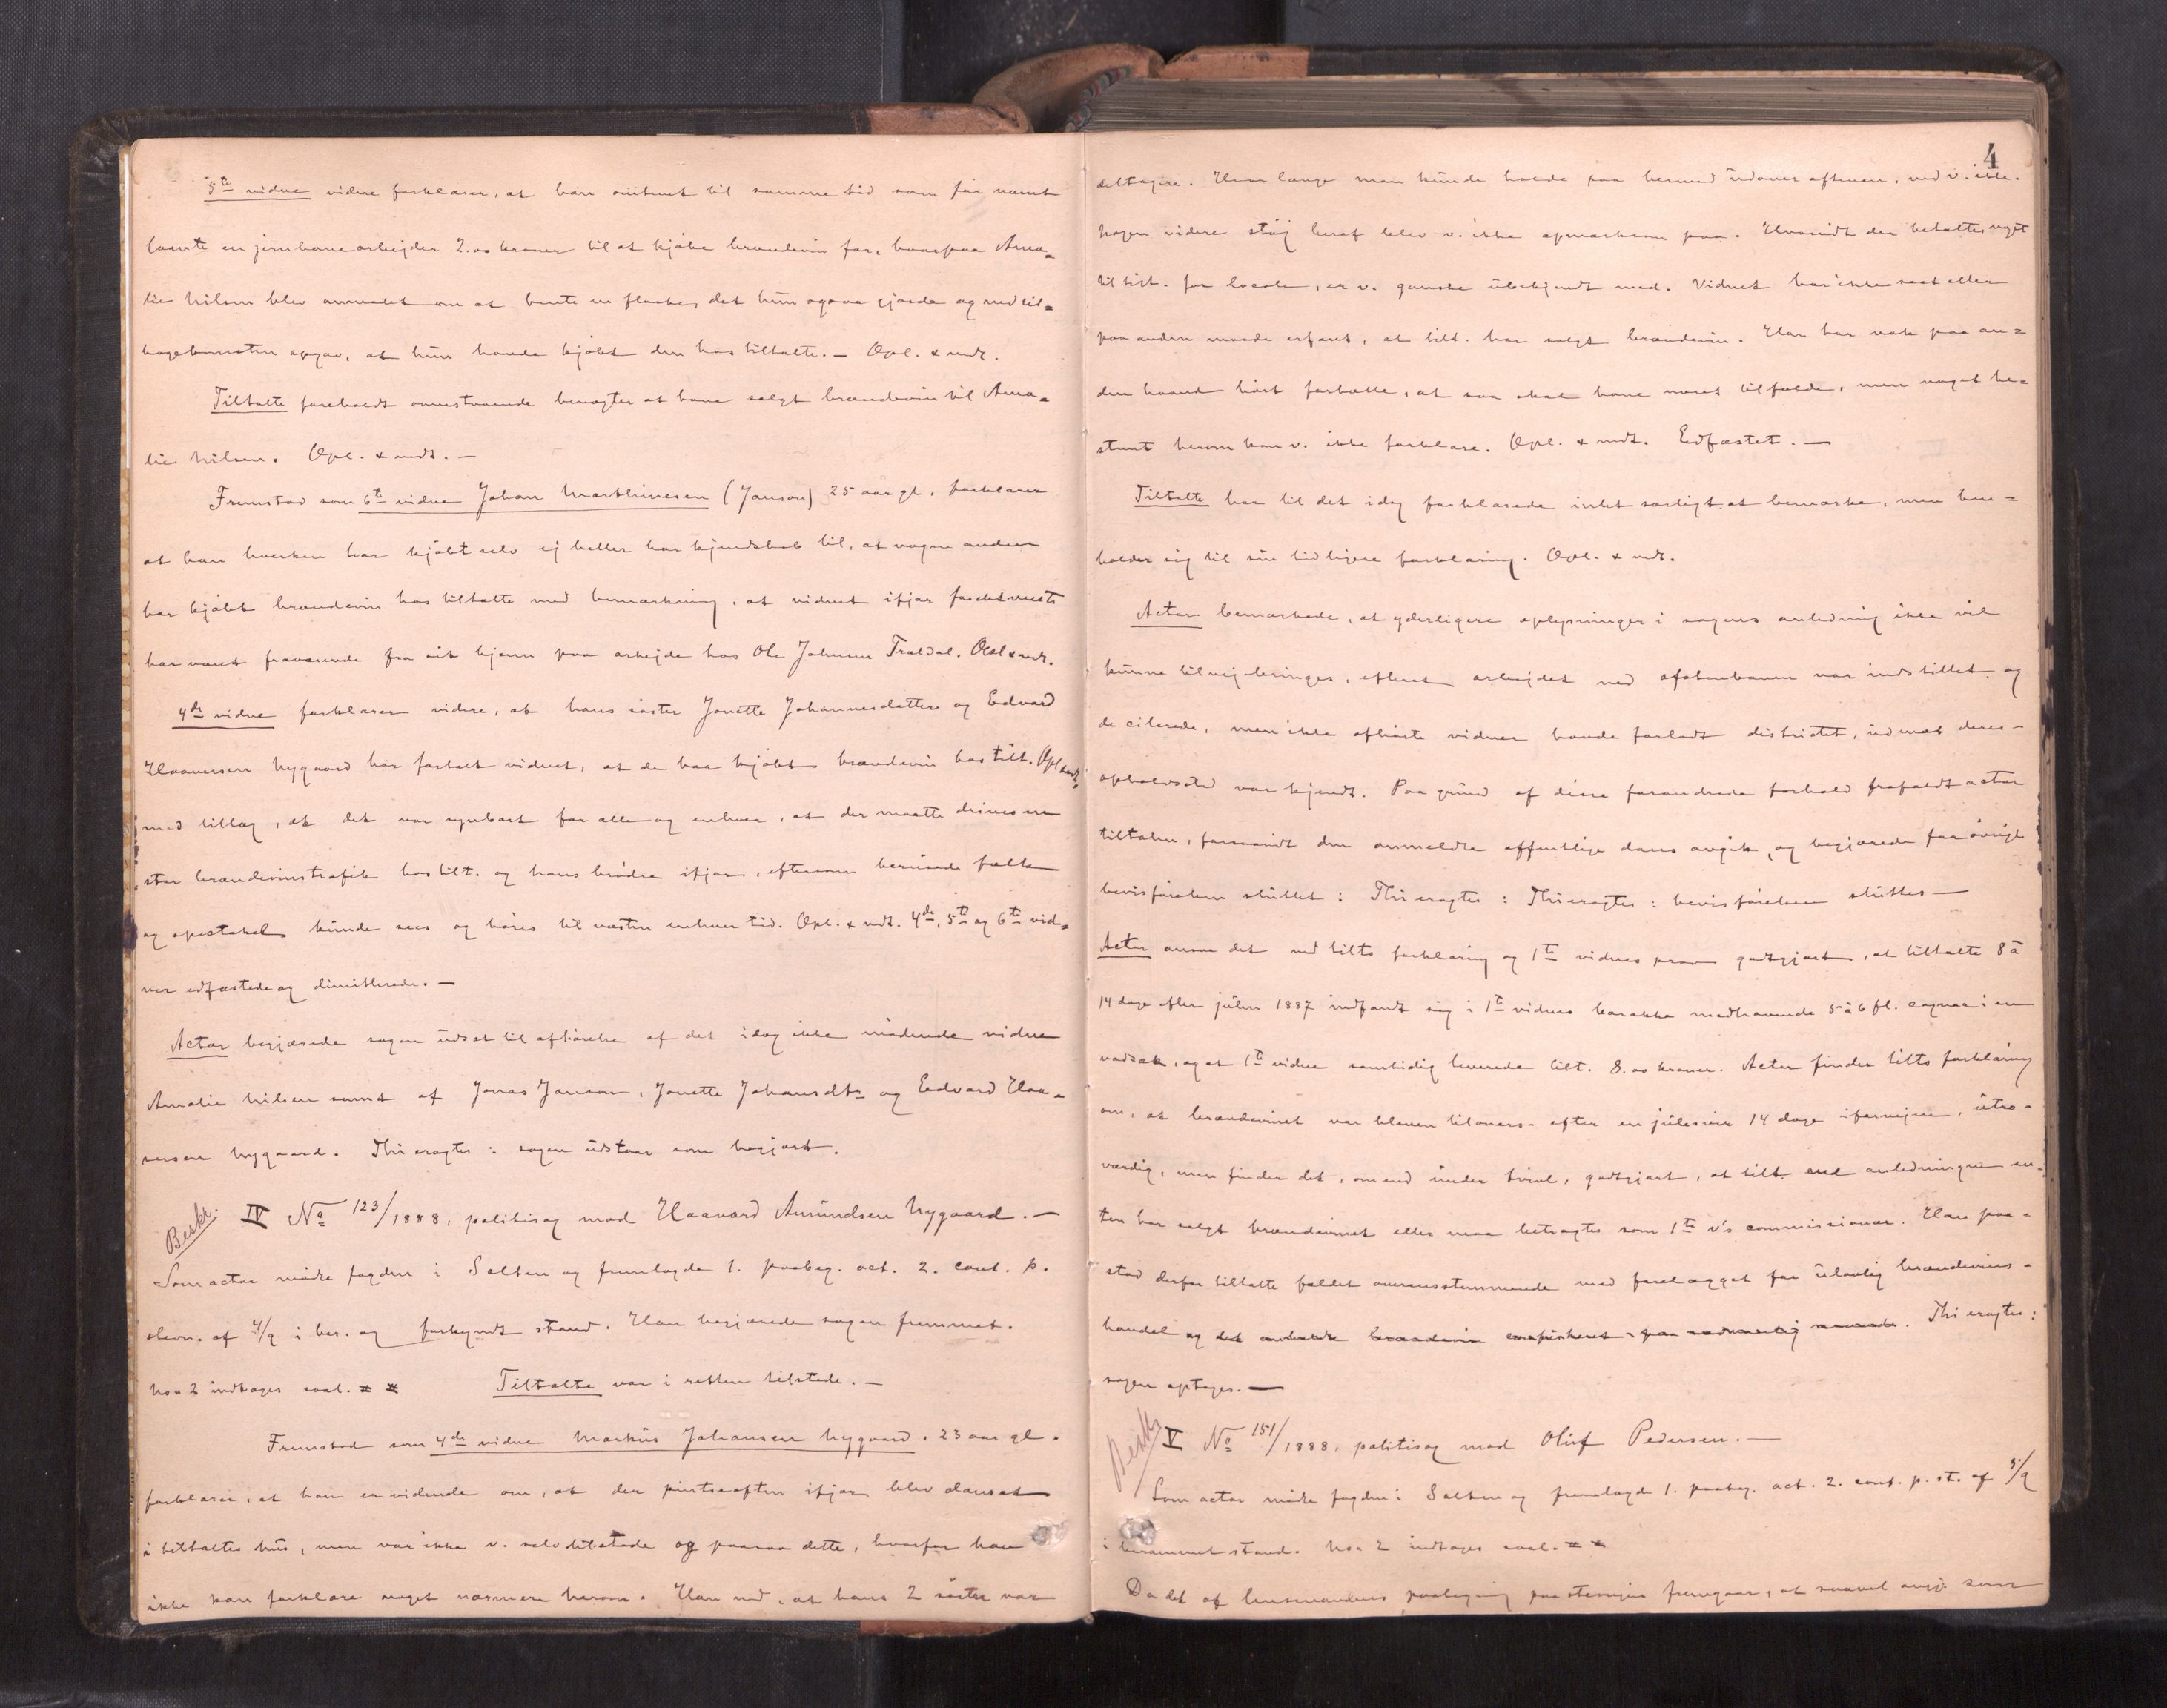 5te vidne videre forklarer, at han omtrent til samme tid som før nævnt
laante en jernbanearbejder 2.00 kroner til at kjøbe brændevin for, hvorpaa Ama-
lie Nilsen blev anmodet om at hente en flaske, det hun ogsaa gjorde og ved til-
bagekomsten opgav, at hun havde kjøbt den hos tiltalte. — Opl. & vedt.
Tiltalte foreholdt ovenstaaende benægter at have solgt brændevin til Ama-
lie Nilsen. Opl. & vedt. —
Fremstod som 6te vidne Johan Marthinesen (Janson) 25 aar gl., forklarer
at han hverken har kjøbt selv ej heller har kjendskab til, at nogen anden
har kjøbt brændevin hos tiltalte med bemærkning, at vidnet ifjor
har været fraværende fra sit hjem paa arbejde hos Ole Johnsen Trældal. Opl & vedt.
4de vidne forklarer videre, at hans søster Jonette Johannesdatter og Edvard
Haaversen Nygaard har fortalt vidnet, at de har kjøbt brændevin hos tilt. Opl & vedt.
med tillæg, at det var synbart for alle og enhver, at der maatte drives en
stor brændevinstrafik hos tilt. og hans brødre ifjor, eftersom berusede folk
og spectakel kunde sees og høres til næsten enhver tid. Opl. & vedt. 4de, 5te og 6te vid-
ner edfæstede og dimitterede. —
Actor begjærede sagen udsat til afhørelse af det idag ikke mødende vidne
Amalie Nilsen samt af Jonas Janson, Jonette Johansdtr og Edvard Haa-
versen Nygaard. Thi eragtes: sagen udstaar som begjært.
Beskr. IV No 123/1888, politisag mod Haavard Amundsen Nygaard. —
Som actor mødte fogden i Salten og fremlagde 1. paabeg. act. 2. cont. p.
stevn. af 4/9 i ber. og forkyndt stand. Han begjærede sagen fremmet.
No. 2 indtages saal. Tiltalte var i retten tilstede. —
Fremstod som 4de vidne Markus Johansen Nygaard, 23 aar gl.
forklarer, at han er vidende om, at der pintseaften ifjor blev danset
i tiltaltes hus, men var ikke v. selv tilstede og paasaa dette, hvorfor han
ikke kan forklare noget nærmere herom. Han ved, at hans 2 søstre var
4
deltagere. Hvor længe man kunde holde paa hermed udover aftenen, ved v. ikke.
Nogen videre støj heraf blev v. ikke opmærksom paa. Hvorvidt der betaltes noget
til tilt. for locale, er v. ganske ubekjendt med. Vidnet har ikke seet eller
paa anden maade erfaret, at tilt. har solgt brændevin. Han har vel paa an-
den haand hørt fortælle, at saa skal have været tilfælde, men noget be-
stemt herom kan v. ikke forklare. Opl. & vedt. Edfæstet. —
Tiltalte har til det idag forklarede intet særligt at bemærke, men hen-
holder sig til sin tidligere forklaring. Opl. & vedt.
Actor bemærkede, at yderligere oplysninger i sagens anledning ikke vil
kunne tilvejebringes, efterat arbejdet ved ofotenbanen var indstillet og
de citerede, men ikke afhørte vidner havde forladt districtet, uden at deres
opholdssted var kjendt. Paa grund af disse forandrede forhold frafaldt actor
tiltalen, forsaavidt den anmeldte offentlige dans angik, og begjærede forøvrigt
bevisførelsen sluttet: Thi eragtes: bevisførelsen sluttes —
Actor ansaa det ved tilts forklaring og 1te vidnes prov godtgjort, at tiltalte 8 à
14 dage efter julen 1887 indfandt sig i 1te vidnes barakke medhavende 5 à 6 fl. cognac i en
vadsæk, og at 1te vidne samtidig leverede tilt. 8.00 kroner. Actor finder tilts forklaring
om, at brændevinet var bleven tilovers efter en julerejse 14 dage iforvejen, utro-
værdig, men finder det, om end under tvivl, godtgjort, at tilt. ved anledningen en-
ten har solgt brændevinet eller maa betragtes som 1te v's commissionær. Han paa-
stod derfor tiltalte fældet overensstemmende med forelægget for ulovlig brændevins-
handel og det anholdte brændevin confiskeret paa maade. Thi eragtes:
sagen optages. —
Beskr V No 151/1888, politisag mod Oluf Pedersen. —
Som actor mødte fogden i Salten og fremlagde 1. paabeg. act. 2. cont. p. st. af 5/9
i berammet stand. No. 2 indtages saal.
Da det af lensmandens paategning paa stevningen fremgaar, at saavel som